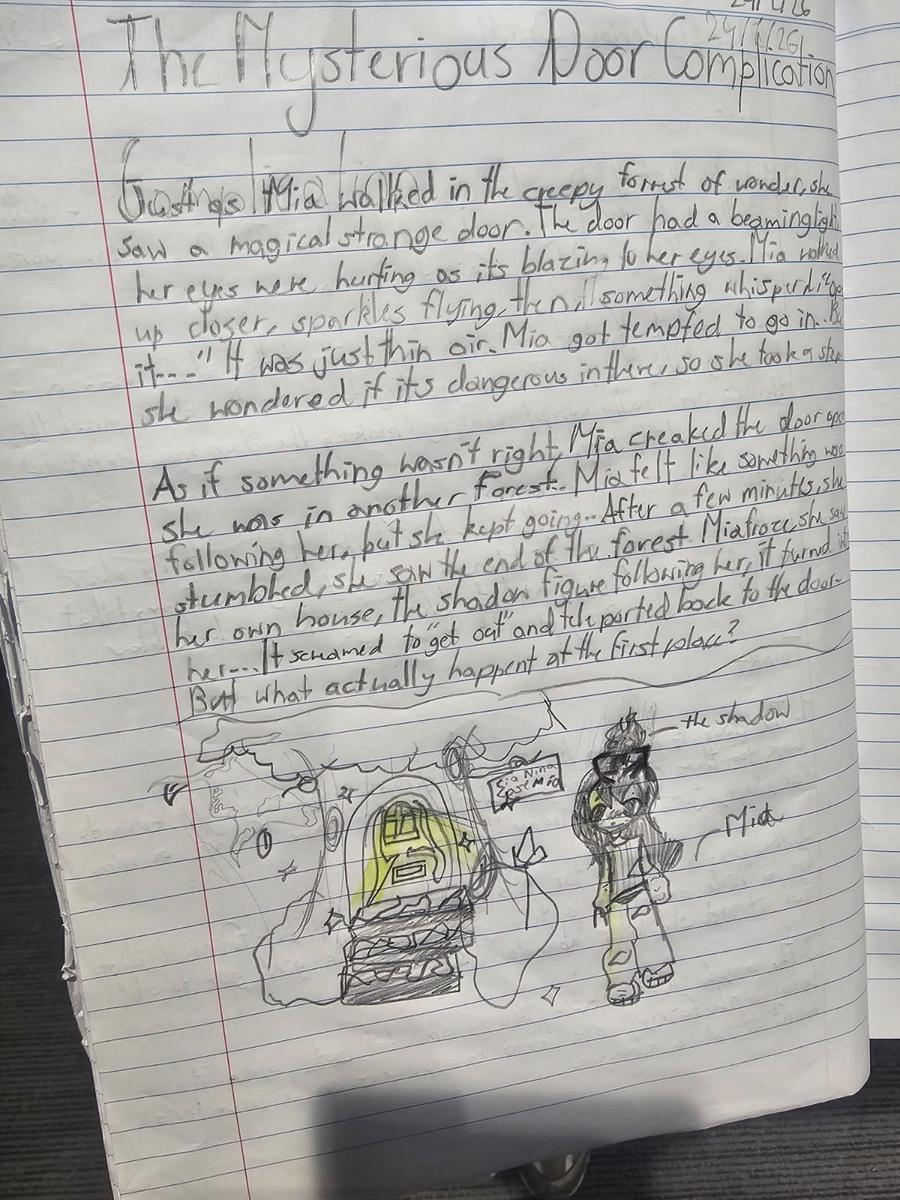 24/2/26
The Mysterious Door Complication
Just as Mia walked in the creepy forrest of wonder, she
saw a magical strange door. The door had a beaming light
her eyes were hurting as its blazing to her eyes. Mia walked
up closer, sparkles flying, then, something whisperd
it...." It was just thin air. Mia got tempted to go in.. But
she wondered if its dangerous in there, so she took a step
As if something wasn't right, Mia creaked the door open
she was in another forest. Mia felt like something was
following her, but she kept going.. After a few minutes, she
stumbled, she saw the end of the forest Mia froze, she saw
her own house, the shadow figure following her, it turned into
her.... It screamed to "get out" and teleported back to the door..
But what actually happent at the first place?
the shadow
Mia